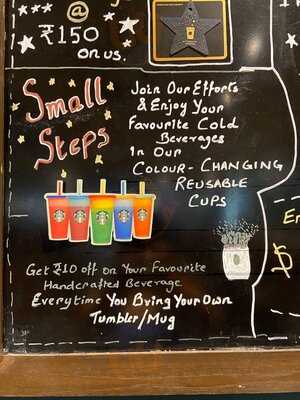 @
₹150
on us.
Small
Steps
Join Our Efforts
& Enjoy Your
Favourite Cold
Beverages
In Our
Colour-Changing
Reusable
Cups
Get ₹10 off on Your Favourite
Handcrafted Beverage
Everytime You Bring Your Own
Tumbler/Mug